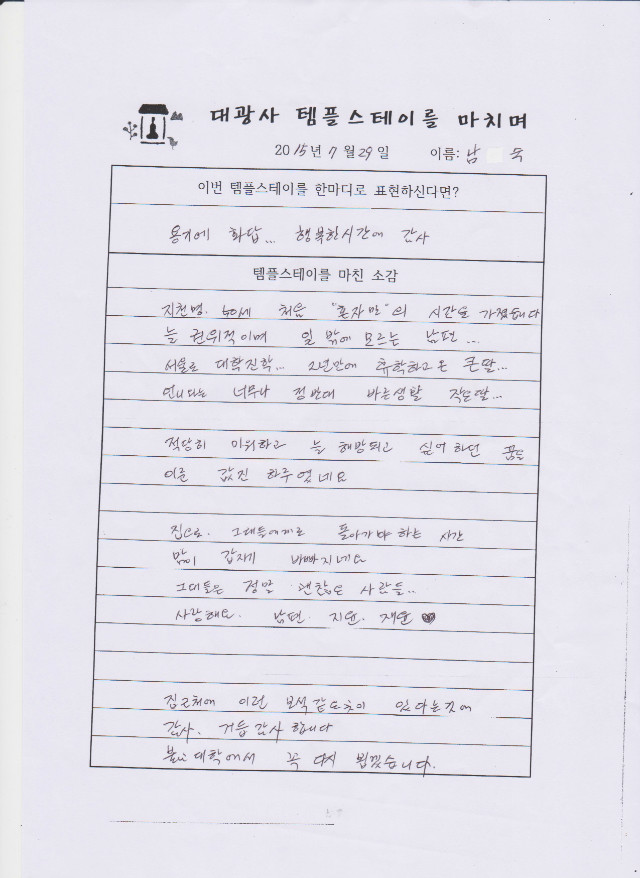 대광사 템플스테이를 마치며
2015년 7월 29일 이름: 남 욱
이번 템플스테이를 한마디로 표현하신다면?
용기에 화답... 행복한시간에 감사
템플스테이를 마친 소감
지천명. 50세 처음 "혼자만"의 시간을 가졌습니다
늘 권위적이며 일 밖에 모르는 남편...
서울로 대학진학... 2년만에 휴학하고 온 큰딸...
언니와는 너무나 정반대 바른생활 작은딸...
적당히 미워하고 늘 해방되고 싶어하던 꿈을
이룬 값진 하루였네요
집으로. 그대들에게로 돌아가야 하는 시간
맘이 갑자기 바빠지네요
그대들은 정말 괜찮은 사람들..
사랑해요. 남편. 지윤. 재윤
집근처에 이런 보석같은곳이 있다는것에
감사. 거듭감사합니다
불교대학에서 꼭 다시 뵙겠습니다.